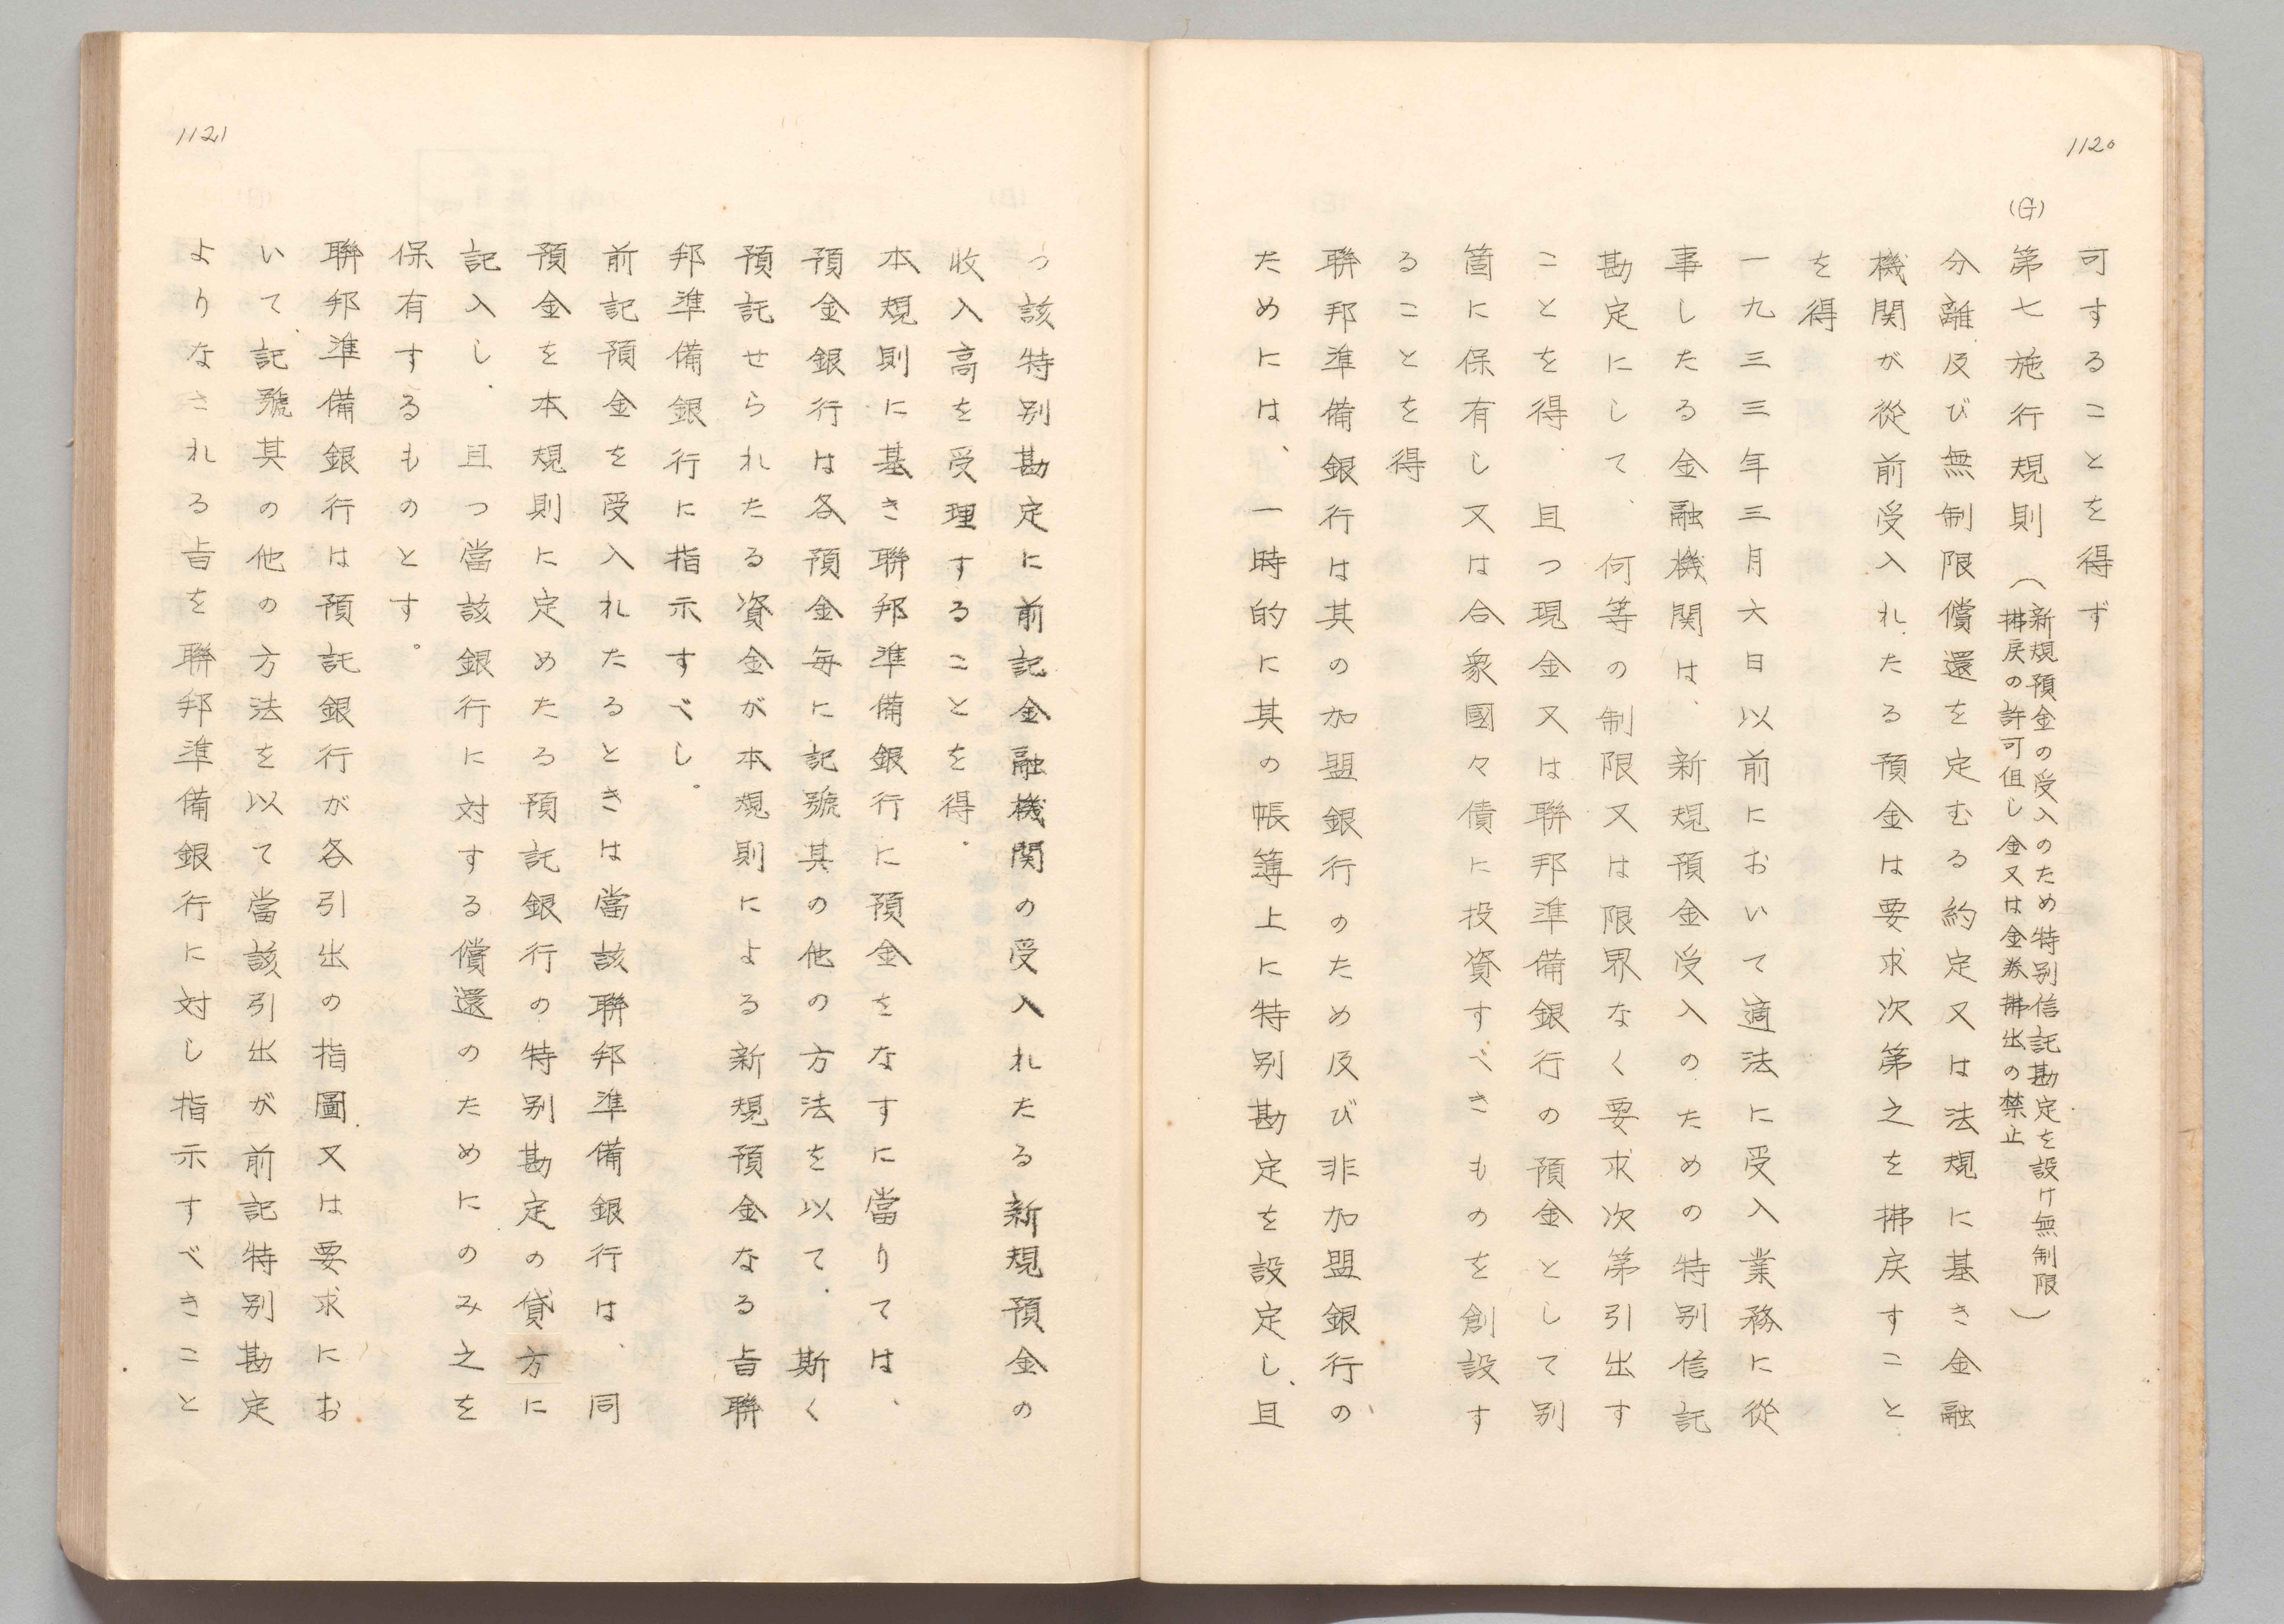 1120
可することを得ず
(G)
第七施行規則（新規預金の受入のため特別信託勘定を設け無制限
拂戻の許可但し金又は金券拂出の禁止）
分離及び無制限償還を定むる約定又は法規に基き金融
機関が從前受入れたる預金は要求次第之を拂戻すこと
を得
一九三三年三月六日以前において適法に受入業務に從
事したる金融機関は、新規預金受入のための特別信託
勘定にして、何等の制限又は限界なく要求次第引出す
ことを得、且つ現金又は聯邦準備銀行の預金として別
箇に保有し又は合衆國々債に投資すべきものを創設す
ることを得
聯邦準備銀行は其の加盟銀行のため及び非加盟銀行の
ためには、一時的に其の帳簿上に特別勘定を設定し、且
1121
つ該特別勘定に前記金融機関の受入れたる新規預金の
收入高を受理することを得。
本規則に基き聯邦準備銀行に預金をなすに當りては、
預金銀行は各預金毎に記號其の他の方法を以て、斯く
預託せられたる資金が本規則による新規預金なる旨聯
邦準備銀行に指示すべし。
前記預金を受入れたるときは當該聯邦準備銀行は、同
預金を本規則に定めたる預託銀行の特別勘定の貸方に
記入し、且つ當該銀行に対する償還のためにのみ之を
保有するものとす。
聯邦準備銀行は預託銀行が各引出の指圖又は要求にお
いて記號其の他の方法を以て當該引出が前記特別勘定
よりなされる旨を聯邦準備銀行に対し指示すべきこと